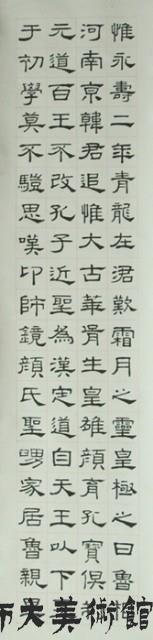 惟永壽二年青龍在涒歎霜月之靈皇極之日魯相
河南京韓君追惟大古華胥生皇雄顏育孔寶俱
元道百王不改孔子近聖為漢定道自天王以下
于初學莫不驥思嘆卬師鏡顏氏聖舅家居魯親里
大美術館